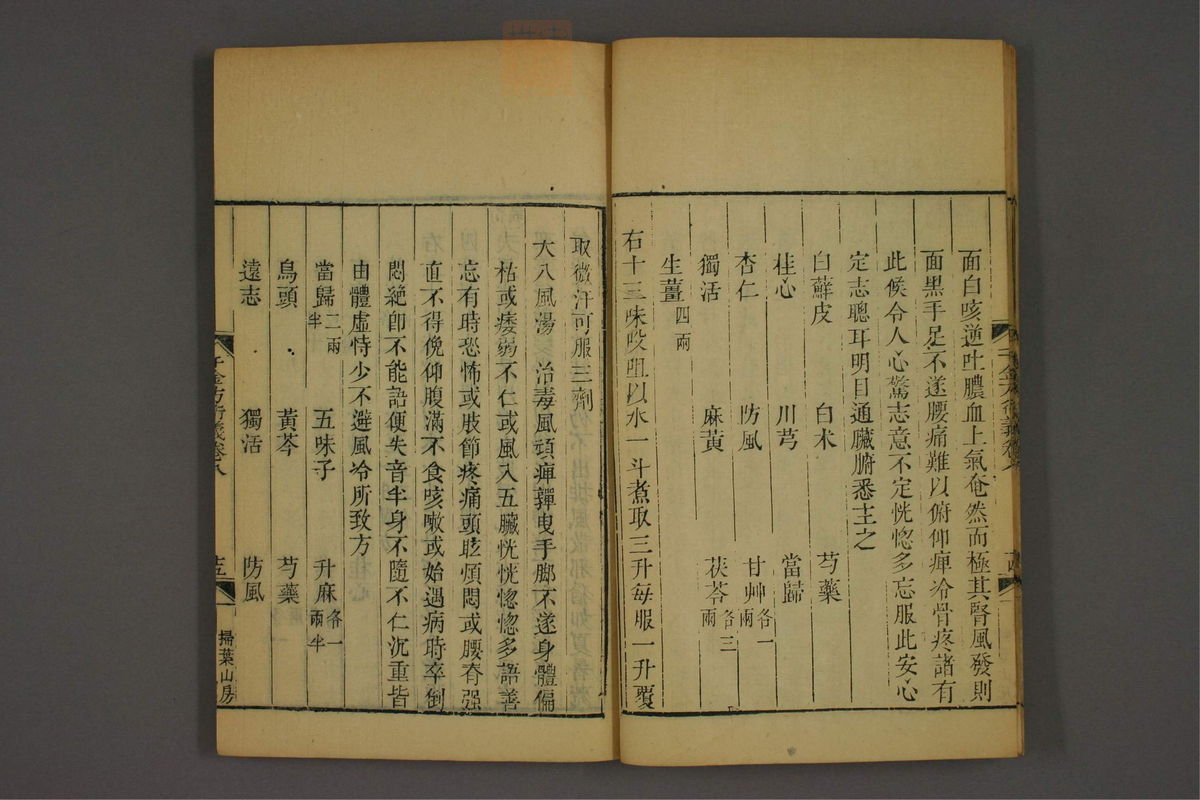 面白咳逆吐膿血上氣奄然而極其腎風發則
面黑手足不遂腰痛難以俯仰痺冷骨疼諸有
此候令人心驚志意不定恍惚多忘服此安心
定志聰耳明目通臟腑悉主之
白蘚皮 白朮 芍藥
桂心 川芎 當歸
杏仁 防風 甘艸各一兩
獨活 麻黃 茯苓各三兩
生薑四兩
右十三味㕮咀以水一斗煮取三升每服一升覆
取微汗可服三劑
大八風湯 治毒風頑痺軃曳手脚不遂身體偏
枯或痿弱不仁或風入五臟恍恍惚惚多語善
忘有時恐怖或肢節疼痛頭眩煩悶或腰脊强
直不得俛仰腹滿不食咳嗽或始遇病時卒倒
悶絕卽不能語便失音半身不隨不仁沉重皆
由體虛恃少不避風冷所致方
當歸二兩半 五味子 升麻各一兩半
烏頭 黃芩 芍藥
遠志 獨活 防風
千金方衍義卷八 十五 掃葉山房